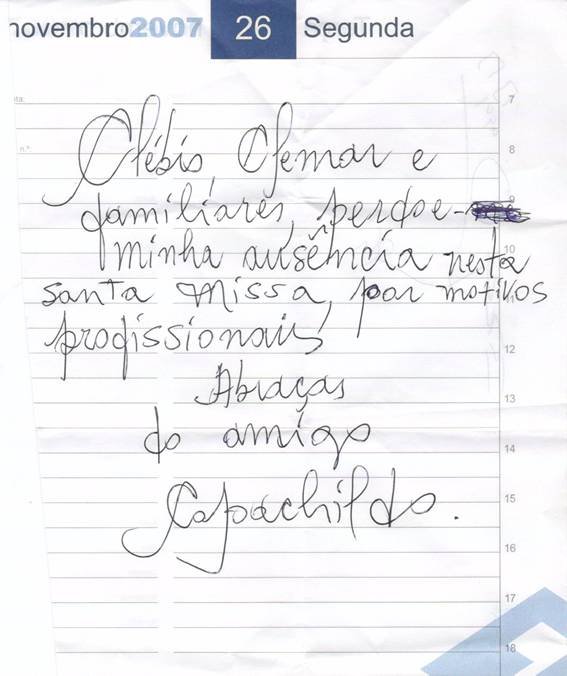 novembro2007 26 Segunda
7
8
Clébio, Clemar e
familiares, perdoe-
9
minha ausência nesta
10
santa missa, por motivos
profissionais
12
Abraços
13
do amigo
14
Capachildo.
15
16
17
18